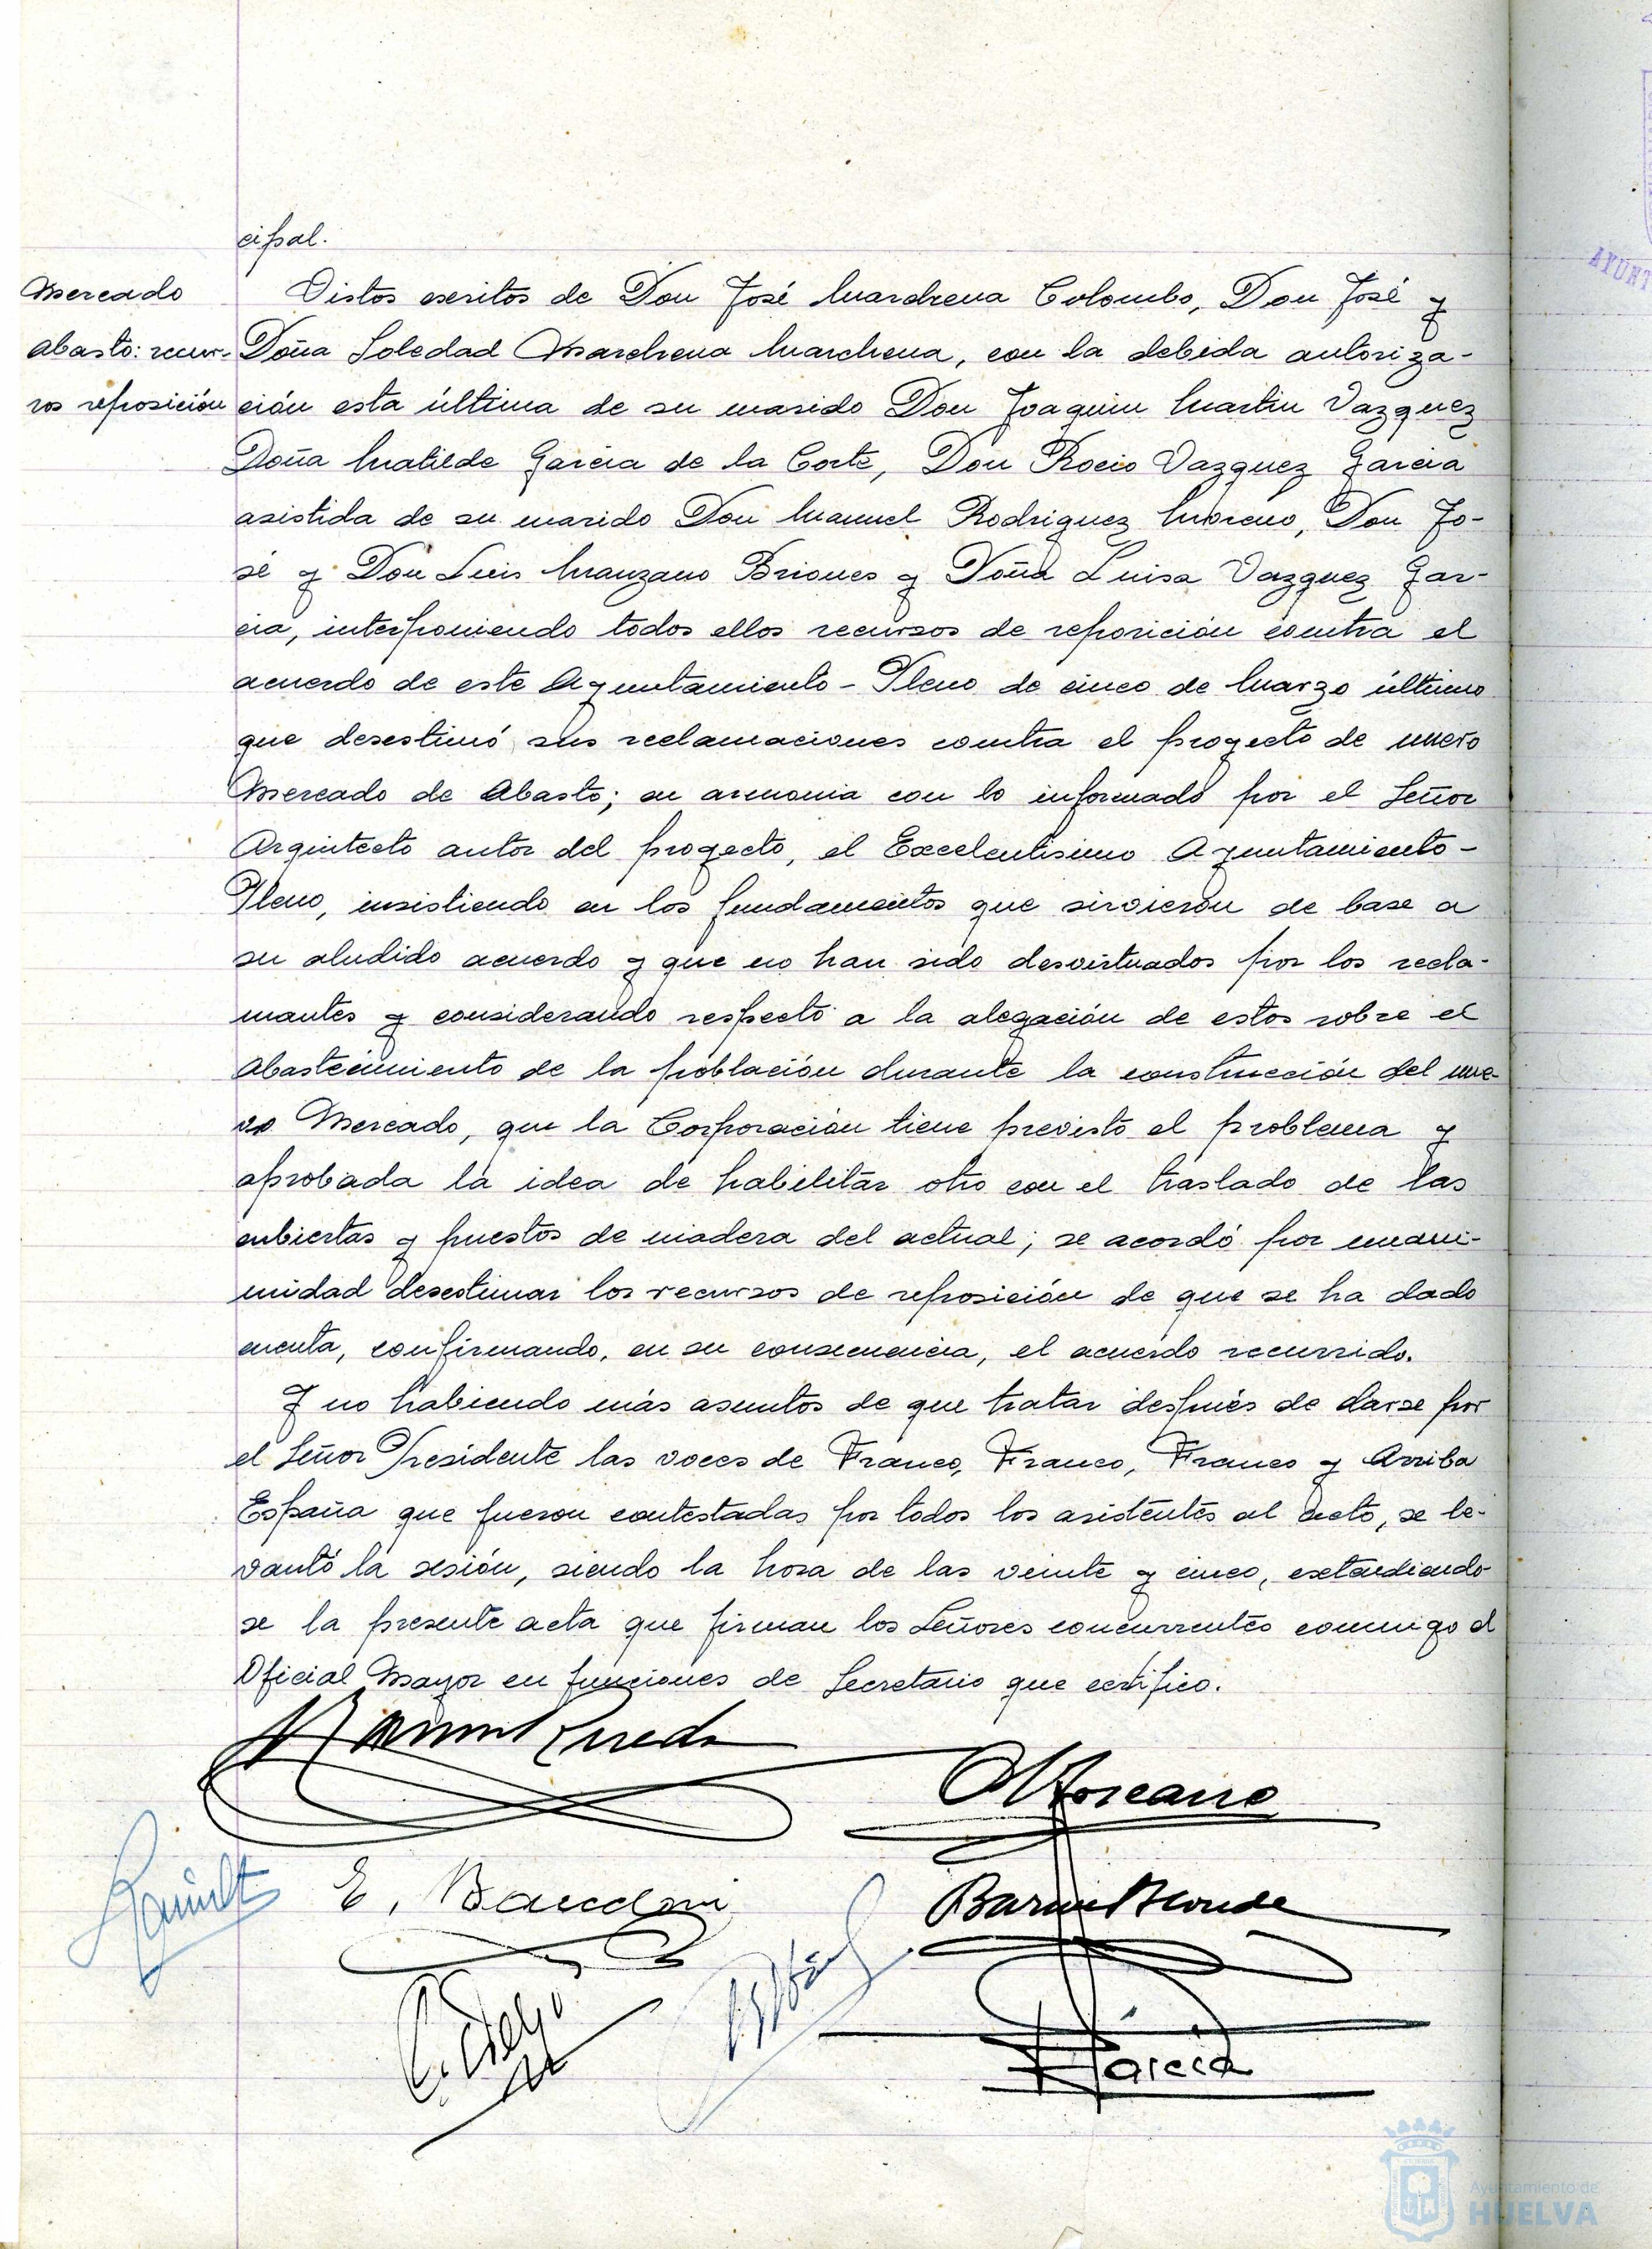 cipal.
Mercado
Abasto: recur-
sos reposición
Vistos escritos de Don José Marchena Colombo, Don José y
Doña Soledad Marchena Marchena, con la debida autoriza-
ción esta última de su marido Don Joaquin Martin Vazquez
Doña Matilde Garcia de la Corte, Don Rocio Vazquez Garcia
asistida de su marido Don Manuel Rodriguez Moreno, Don Jo-
sé y Don Luis Manzano Briones y Doña Luisa Vazquez Gar-
cia, interponiendo todos ellos recursos de reposición contra el
acuerdo de este Ayuntamiento-Pleno de cinco de Marzo último
que desestimó sus reclamaciones contra el proyecto de nuevo
Mercado de Abasto; en armonia con lo informado por el Señor
Arquitecto autor del proyecto, el Excelentisimo Ayuntamiento-
Pleno, insistiendo en los fundamentos que sirvieron de base a
su aludido acuerdo y que no han sido desvirtuados por los recla-
mantes y considerando respecto a la alegación de estos sobre el
Abastecimiento de la población durante la construcción del nue-
vo Mercado, que la Corporación tiene previsto el problema y
aprobada la idea de habilitar otro con el traslado de las
cubiertas y puestos de madera del actual; se acordó por unani-
midad desestimar los recursos de reposición de que se ha dado
cuenta, confirmando, en su consecuencia, el acuerdo recurrido.
Y no habiendo más asuntos de que tratar después de darse por
el Señor Presidente las voces de Franco, Franco, Franco y Arriba
España que fueron contestadas por todos los asistentes al acto, se le-
vantó la sesión, siendo la hora de las veinte y cinco, extendiendo-
se la presente acta que firman los Señores concurrentes conmigo el
Oficial Mayor en funciones de Secretario que certifico.
E.
Garcia
Ayuntamiento de
HUELVA